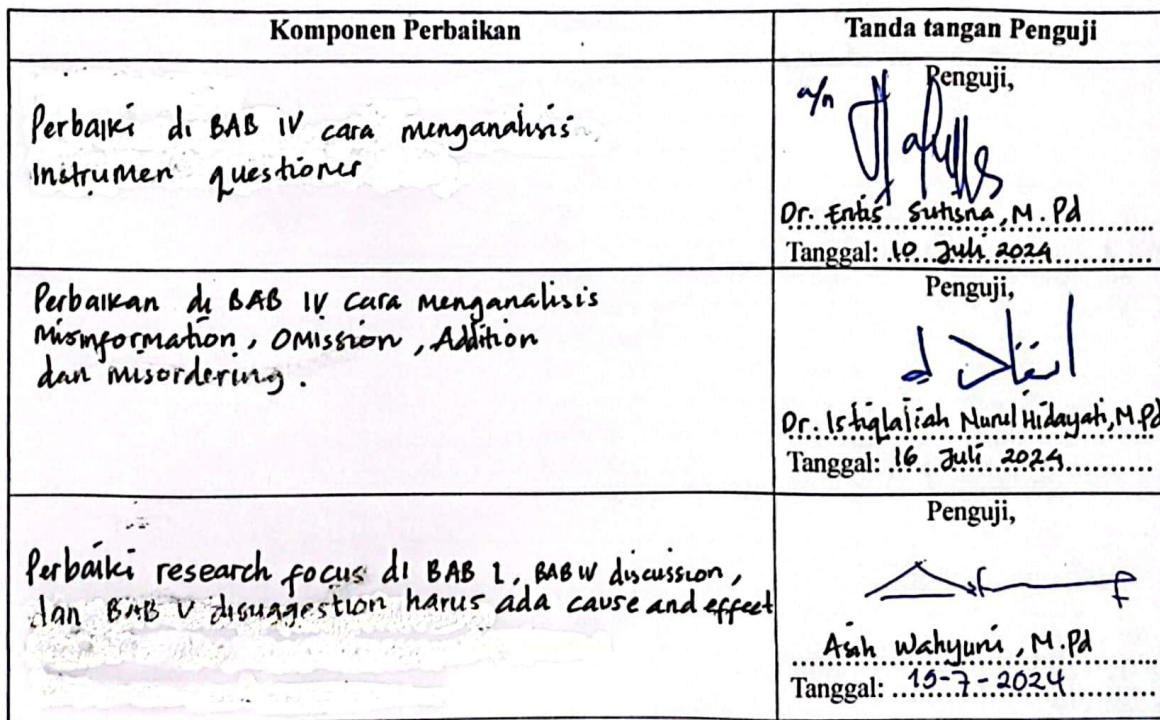 Komponen Perbaikan
Tanda tangan Penguji
Perbaiki di BAB IV cara menganalisis
Instrumen questioner
Penguji,
a/n
Dr. Entis Sutisna, M.Pd
Tanggal: 10 Juli 2024
Perbaikan di BAB IV cara menganalisis
Misinformation, Omission, Addition
dan misordering.
Penguji,
Dr. Istiqlaliah Nurul Hidayati, M.Pd
Tanggal: 16 Juli 2024
Perbaiki research focus di BAB I, BAB IV discussion,
dan BAB V disuggestion harus ada cause and effect
Penguji,
Asih Wahyuni, M.Pd
Tanggal: 15-7-2024